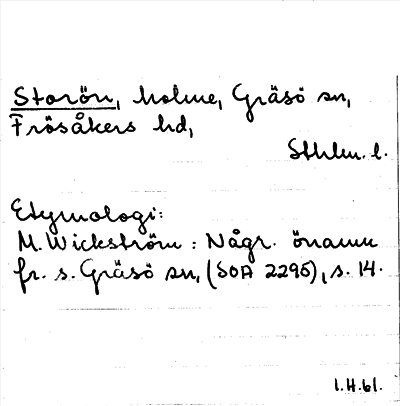 Storön, holme, Gräsö sn,
Frösåkers hd,
Sthlm. l.
Etymologi:
M. Wickström: Någr. önamn
fr. s. Gräsö sn, (SOA 2295), s. 14.
I.H.61.